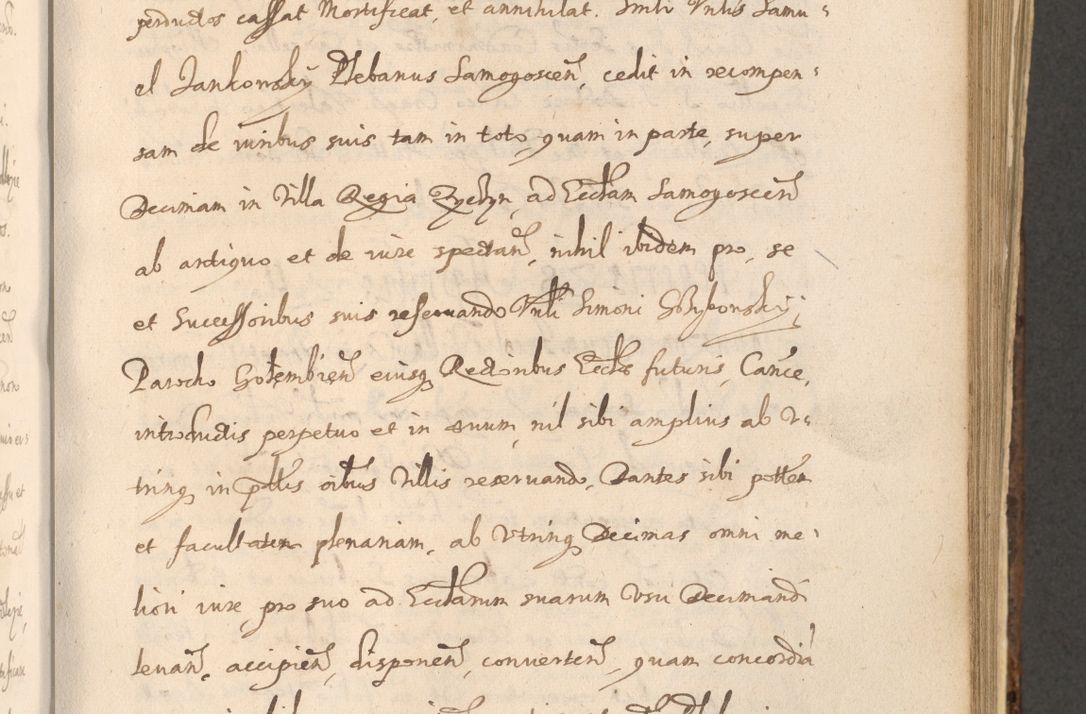 perductos cassat Mortificat, et annihilat. Insti Vnlis Samu-
el Jankowsky Plebanus Samogoscen, cedit in recompen-
sam de iuribus suis tam in toto, quam in parte, super
Decimam in Villa Regia Zychyn, ad Ecclam Samogoscen
ab antiquo et de iure spectan, nihil ibidem pro, se
et Successoribus suis reseruando Vnli Simoni
Parocho Golembien eiusq Rectoribus Eccles futuris, Cance,
introductis perpetuo et in euum, nil sibi amplius ab V-
trinq in pttis oibus Villis reseruando, Dantes sibi pottem
et facultatem plenariam, ab Vtrinq Decimas omni me-
liori iure pro suo ad Ecclarum suarum Vsu Decimandi
leuan, accipien, disponen, conuerten, quam concordia